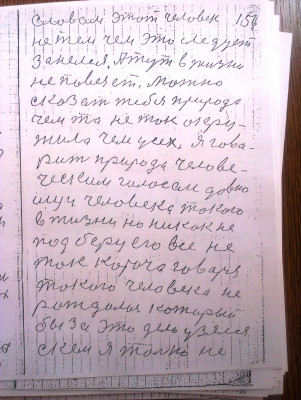 словам этот человек 156
не тем чем это следует
занелся. Атут в жизни
не повезет. Можно
сказат тебя природа
чем та не ток окру-
жила чем усех, я гова-
рит природа челове-
ческим гилосам довно
ищу человека токого
в жизни но никокне
под беру его все не
ток короча гаваря
токого человека не
рождалос который
бы за это дело узялся
скем я толко не